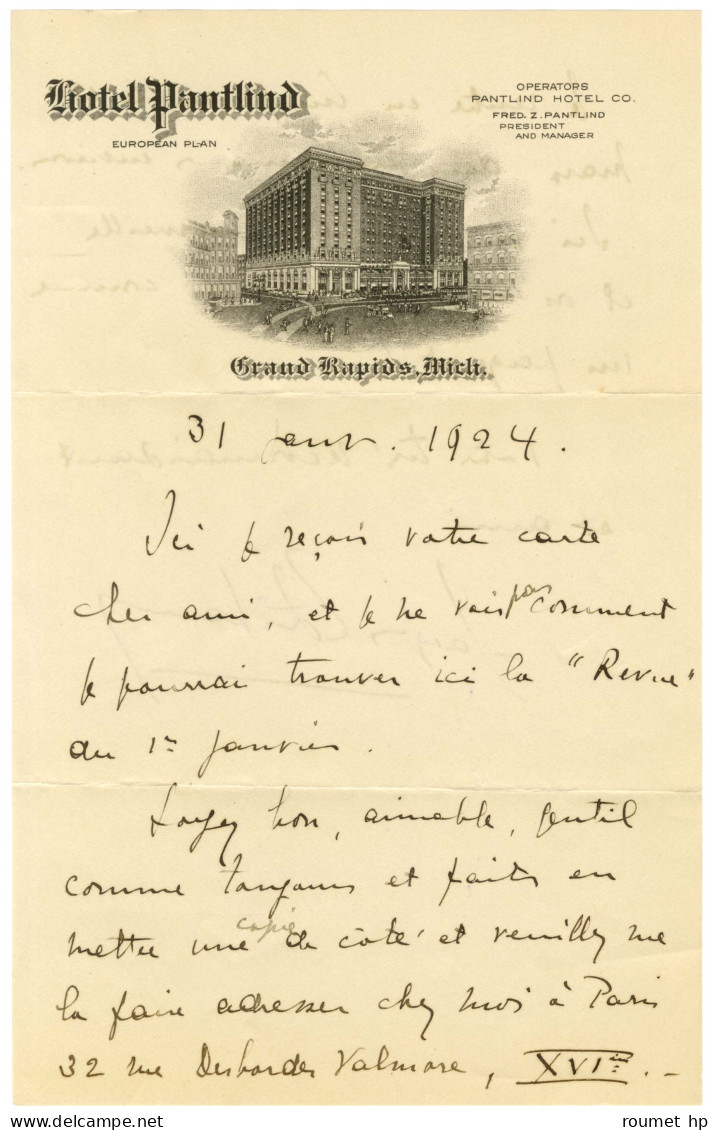 Hotel Pantlind
EUROPEAN PLAN
OPERATORS
PANTLIND HOTEL CO.
FRED. Z. PANTLIND
PRESIDENT
AND MANAGER
Grand Rapids, Mich.
31 janv. 1924.
Ici je reçois votre carte
cher ami, et je ne vois pas comment
je pourrai trouver ici la "Revue"
du 1er janvier.
Soyez bon, aimable, gentil
comme toujours et faites en
mettre une copie de côté et veuillez me
la faire adresser chez moi à Paris
32 rue Desbordes Valmore, XVIème. -
roumet hp